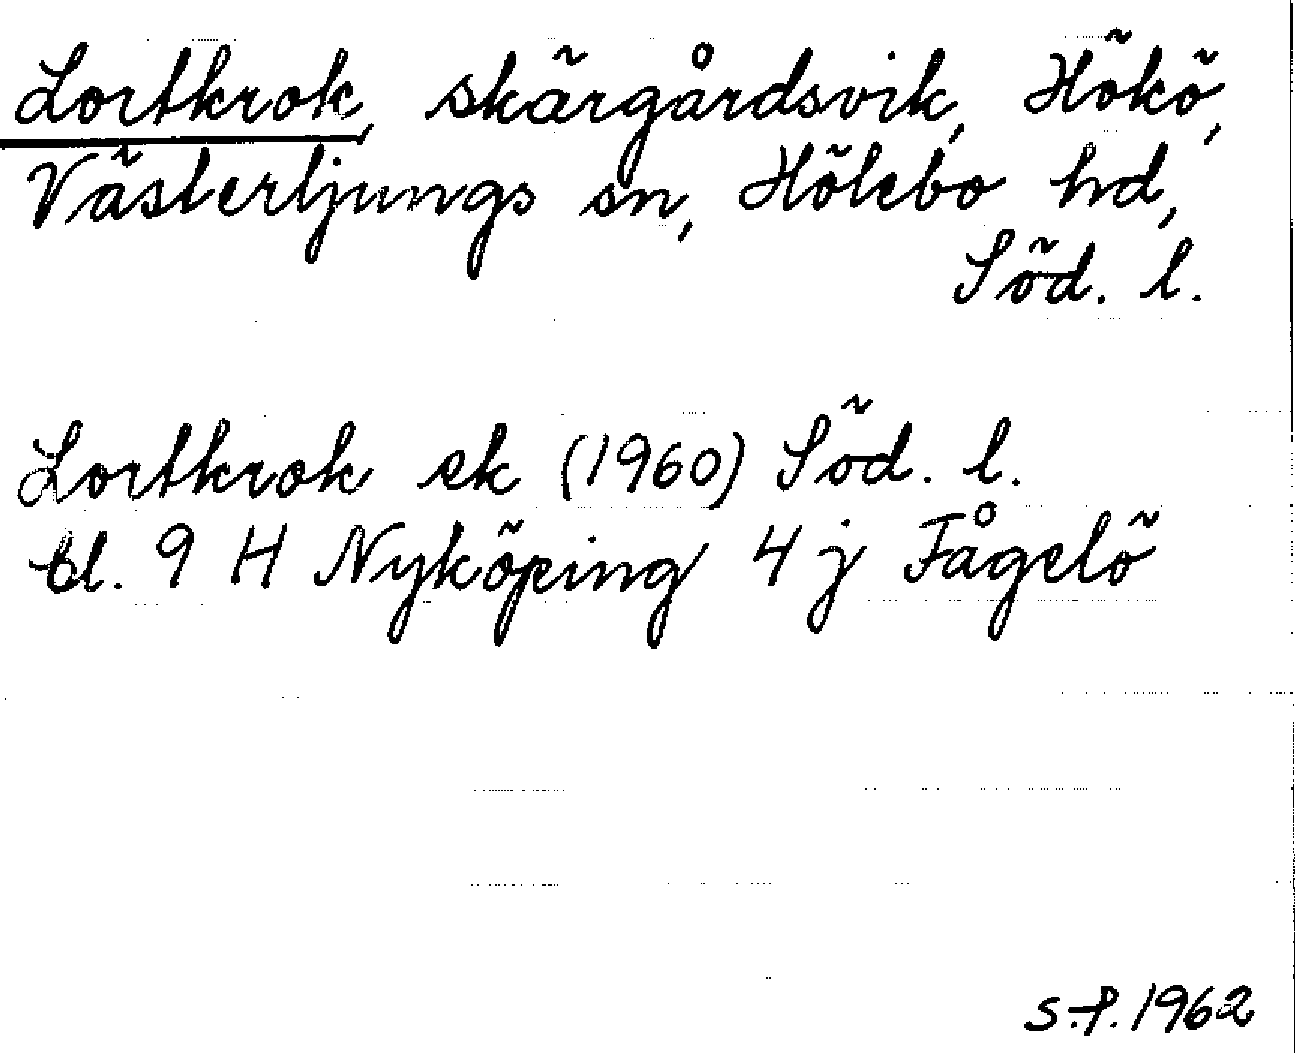 Lortkrok, skärgårdsvik, Hökö,
Västerljungs sn, Hölebo hd,
Söd. l.
Lortkrok ek (1960) Söd. l.
bl. 9 H Nyköping 4 j Fågelö
S.P. 1962